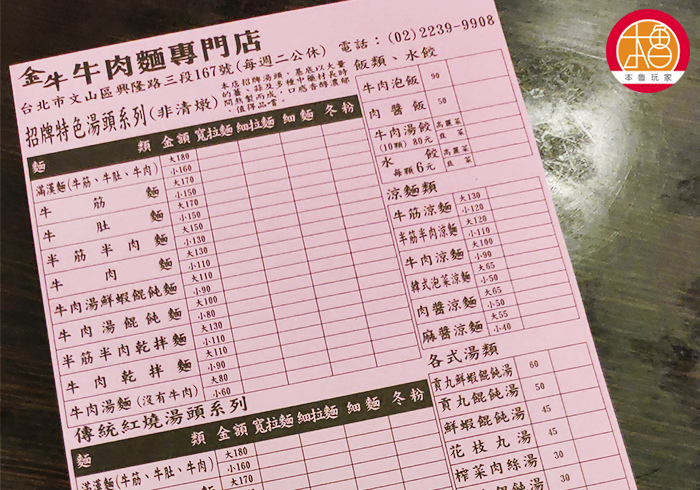 金牛牛肉麵專門店
台北市文山區興隆路三段167號(每週二公休) 電話：(02)2239-9908
招牌特色湯頭系列(非清燉)
本店招牌湯頭，基底以大量
的蕃茄及多種中藥材長時
間熬製而成，口感香醇濃郁
，值得品嘗。
麵 類 金額 寬拉麵 細拉麵 細麵 冬粉
滿漢麵(牛筋、牛肚、牛肉) 大180 小160
牛筋麵 大170 小150
牛肚麵 大170 小150
半筋半肉麵 大150 小130
牛肉麵 大130 小110
牛肉湯鮮蝦餛飩麵 大110 小90
牛肉湯餛飩麵 大100 小80
半筋半肉乾拌麵 大130 小110
牛肉乾拌麵 大110 小90
牛肉湯麵(沒有牛肉) 大80 小60
傳統紅燒湯頭系列
麵 類 金額 寬拉麵 細拉麵 細麵 冬粉
滿漢麵(牛筋、牛肚、牛肉) 大180 小160
大170
飯類、水餃
牛肉泡飯 90
肉醬飯 50
牛肉湯餃 (10顆) 80元 高麗菜 韭菜
水餃 每顆6元 高麗菜 韭菜
涼麵類
牛筋涼麵 大130 小120
半筋半肉涼麵 大120 小110
牛肉涼麵 大100 小90
韓式泡菜涼麵 大65 小50
肉醬涼麵 大65 小50
麻醬涼麵 大55 小40
各式湯類
貢丸鮮蝦餛飩湯 60
貢丸餛飩湯 50
鮮蝦餛飩湯 45
花枝丸湯 45
榨菜肉絲湯 30
餛飩湯 30
本魯玩家